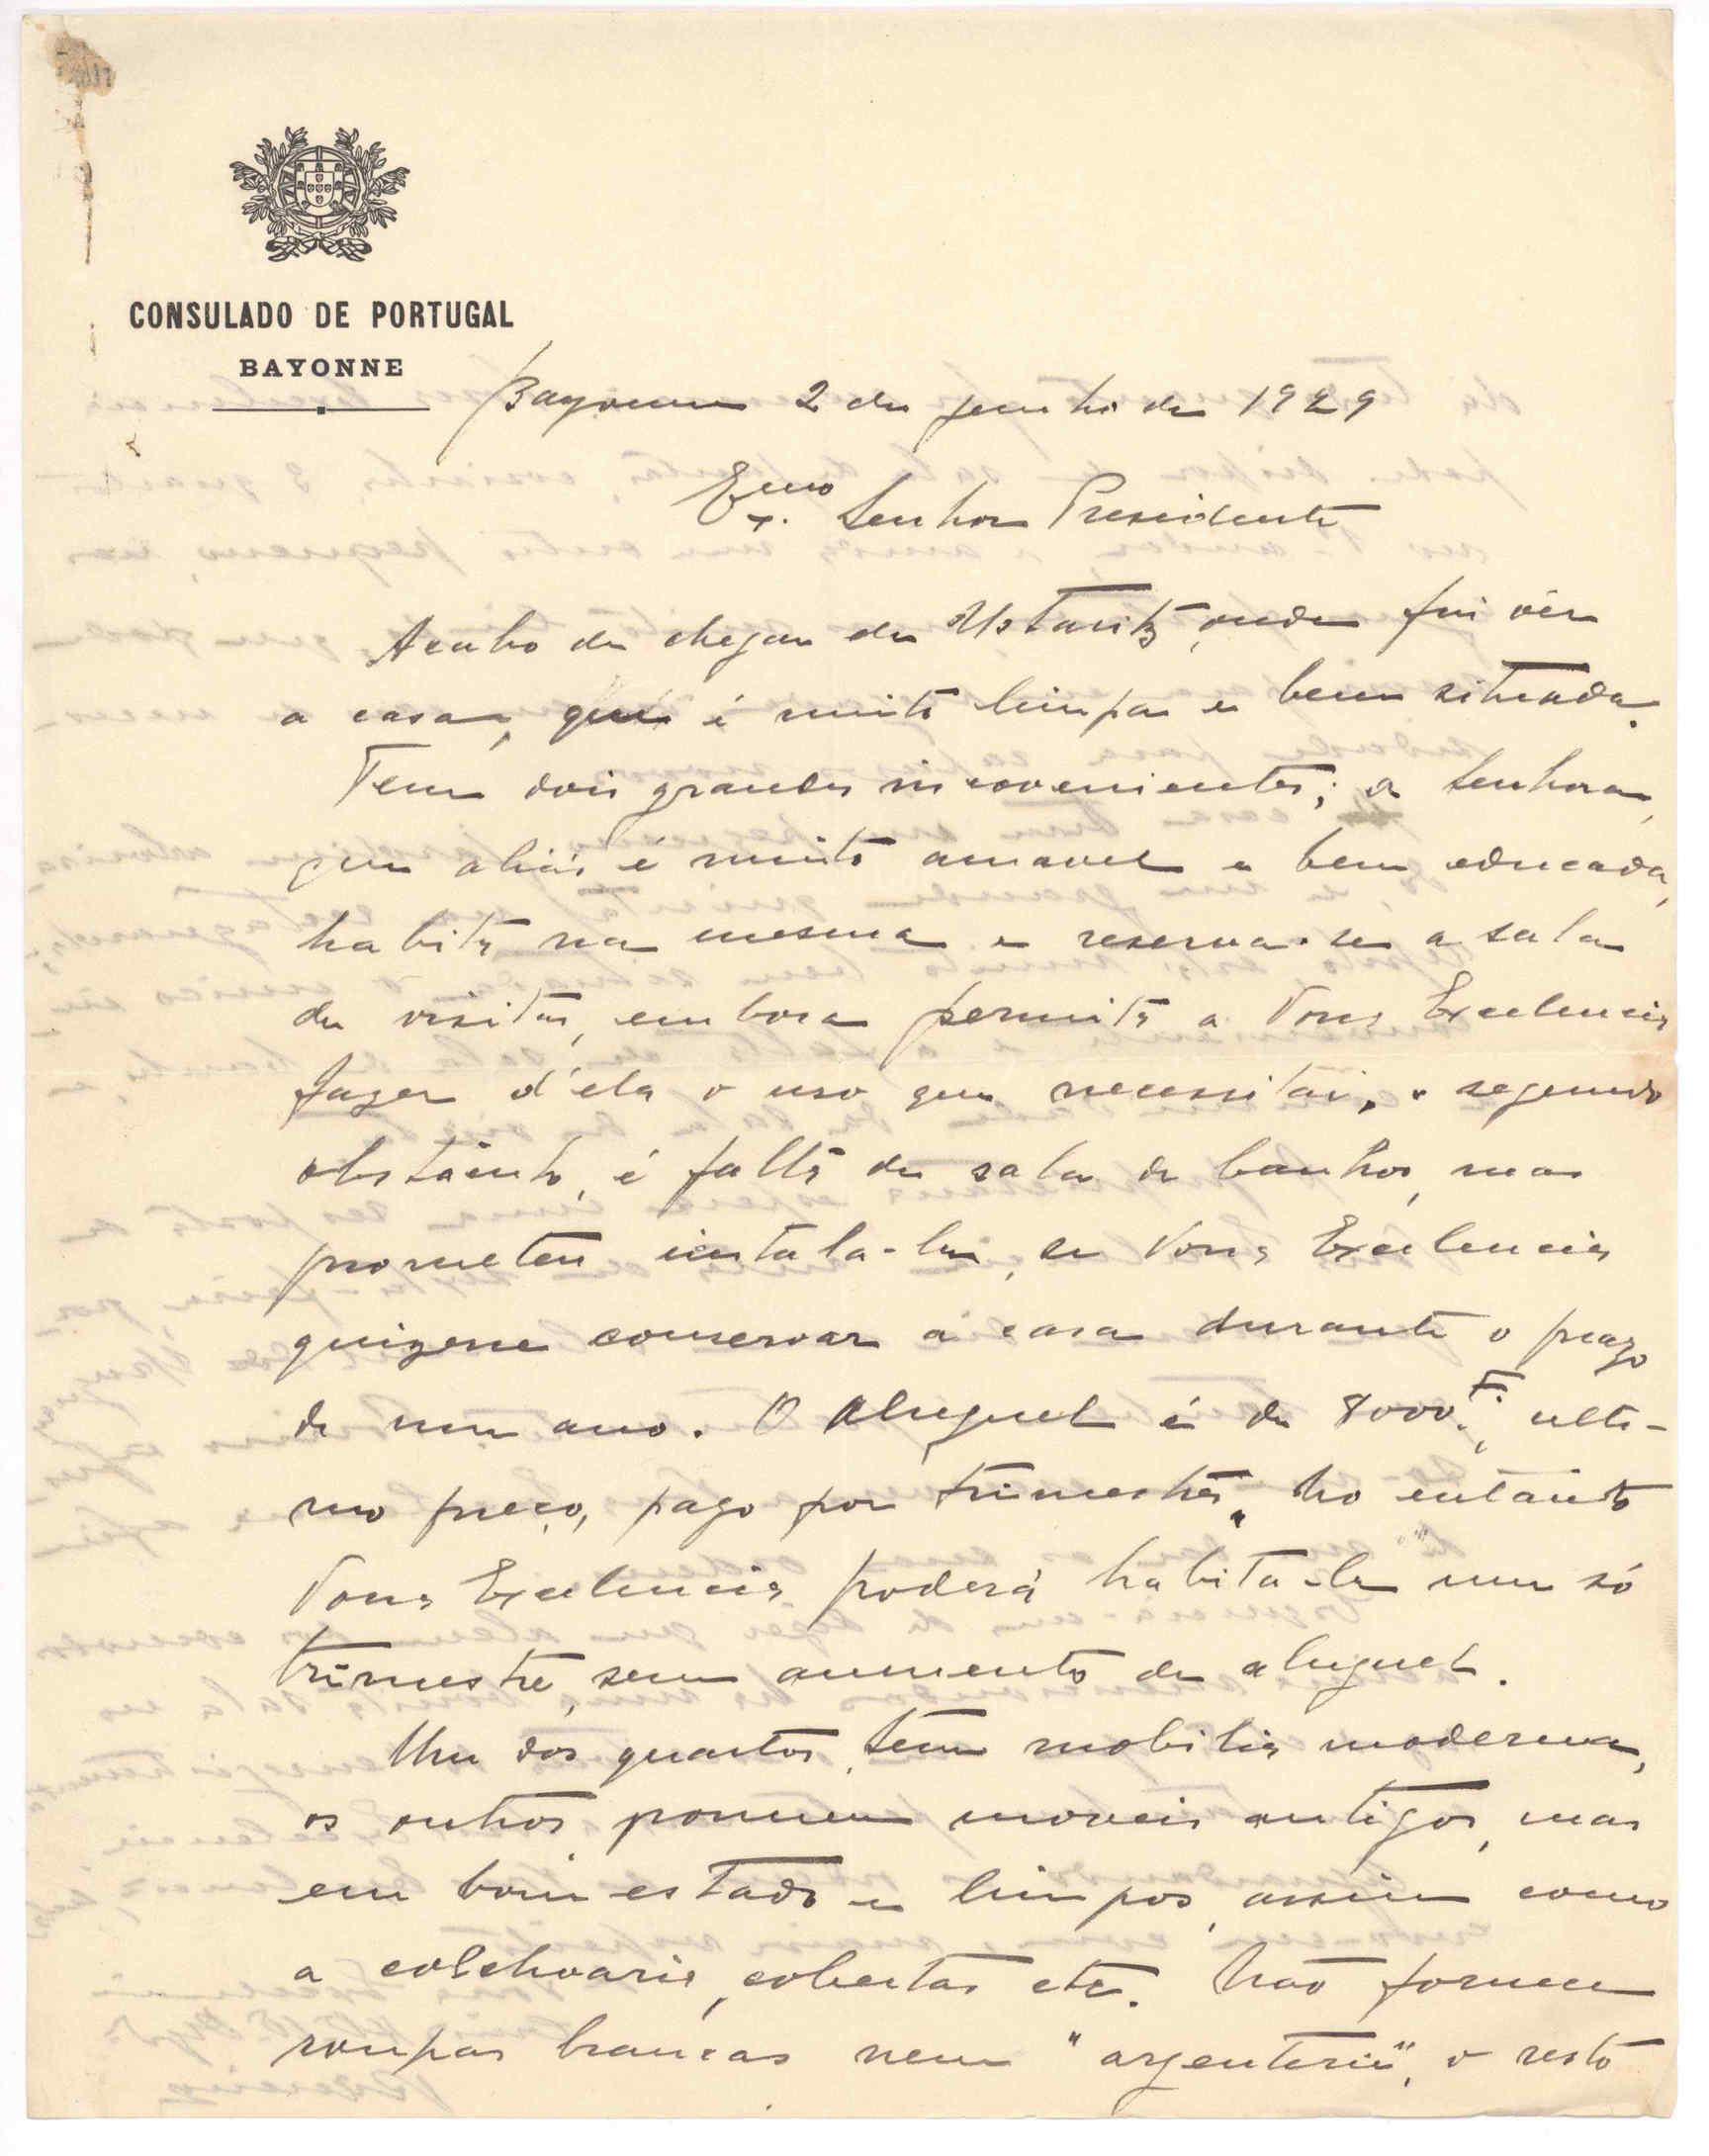 CONSULADO DE PORTUGAL
BAYONNE
Bayonne 2 de junho de 1929
Exmo. Senhor Presidente
Acabo de chegar de Ustaritz, onde fui vêr
a casa, que é muito limpa e bem situada.
Tem dois grandes incovenientes; a Senhora,
que aliás é muito amavel e bem educada,
habita na mesma e reserva-se a sala
de visitas, embora permita a Vossa Excelencia
fazer d'ela o uso que necessitar, o segundo
obstáculo, é falta de sala de banhos, mas
prometeu instala-la, se Vossa Excelencia
quizesse conservar a casa durante o prazo
de um ano. O aluguel é de 8000 F., ulti-
mo preço, pago por trimestre. No entanto
Vossa Excelencia poderá habita-la um só
trimestre, sem aumento de aluguel.
Um dos quartos, tem mobilia moderna,
os outros possuem moveis antigos, mas
em bom estado e limpos, assim como
a colchoaria, cobertas etc. Não fornece
roupas brancas nem "argenterie", o resto